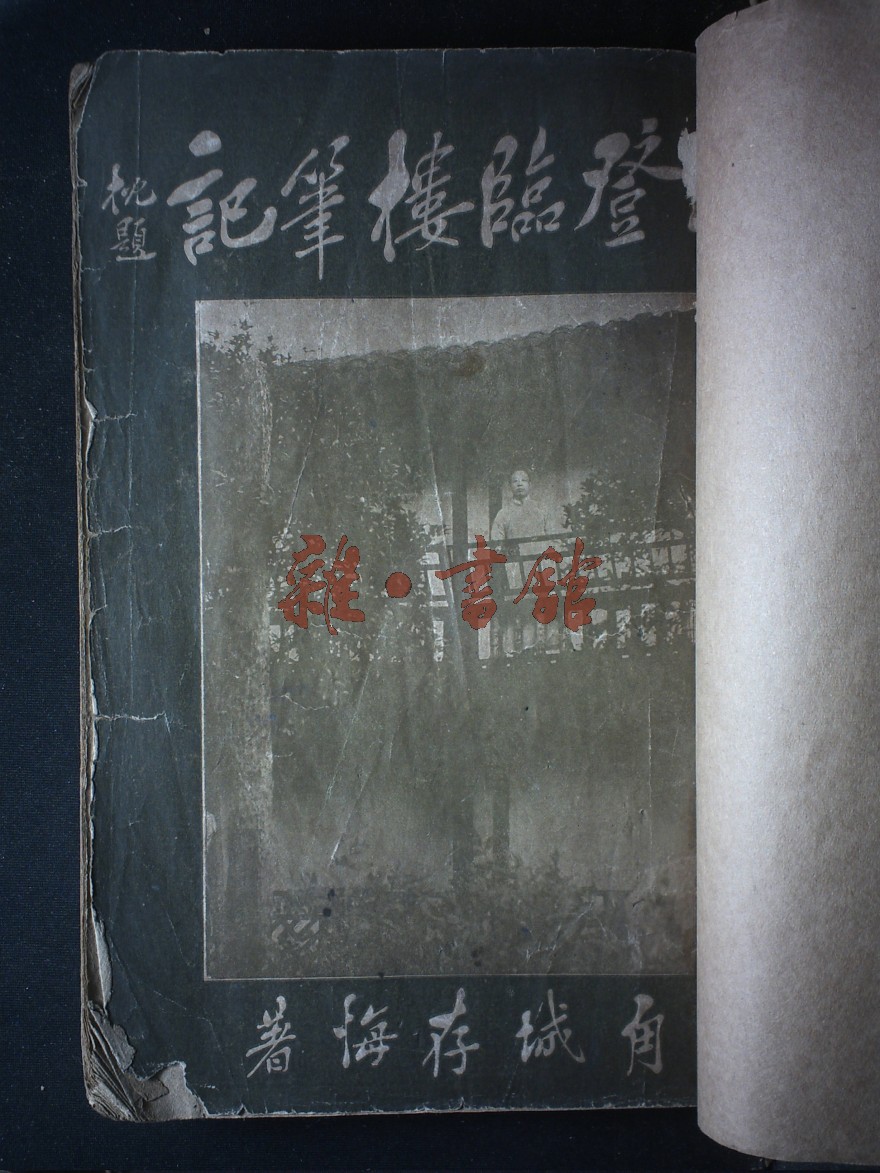 登臨樓筆記
枕題
雜·書館
角城存悔著